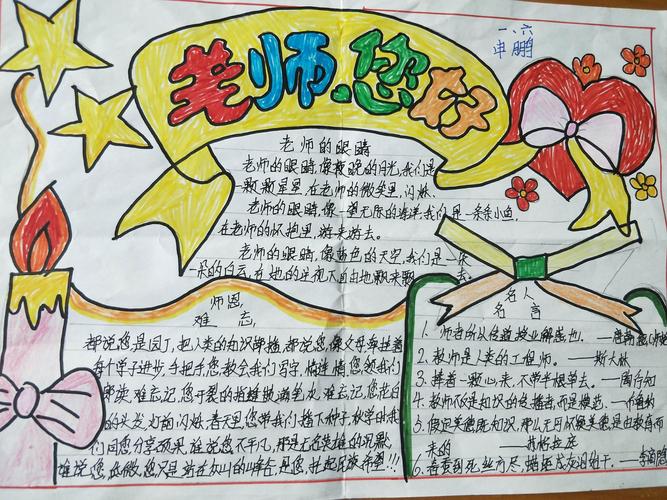 老师、您好
一、六
申鹏
老师的眼睛
老师的眼睛,像夜晚的月光,我们是
一颗颗星星,在老师的微笑里,闪烁。
老师的眼睛,像一望无际的海洋,我们是一条条小鱼,
在老师的怀抱里,游来游去。
老师的眼睛,像蓝色的天空,我们是一朵
一朵的白云,在她的注视下自由地飘来飘去。
师恩
难忘
都说您是园丁,把人类的知识,都说您,像父母牵挂着
每个学子进步,手把手,您教会我们写字,您领我们
难忘记,您,难忘记,您花白
的头发,灯前闪烁,春天里,您带我们播下种子,秋学时我
们同您分享硕果,谁说您不平凡,那是无名英雄的沉默
谁说您,低微,您只是站在众山的峰谷,是您,托起民族希望!!!
名人
名言
1、师者所以传道,授业解惑也。——唐韩愈
2、教师是人类的工程师。——斯大林
3、捧着一颗心来,不带半根草去。——陶行知
4、教师不仅是知识的传播者,而是模范。——布鲁纳
5、假定美德既知识,那么无可怀疑美德是由教育而
来的——苏格拉底
6、春蚕到死丝方尽,蜡炬成灰泪始干。——李商隐